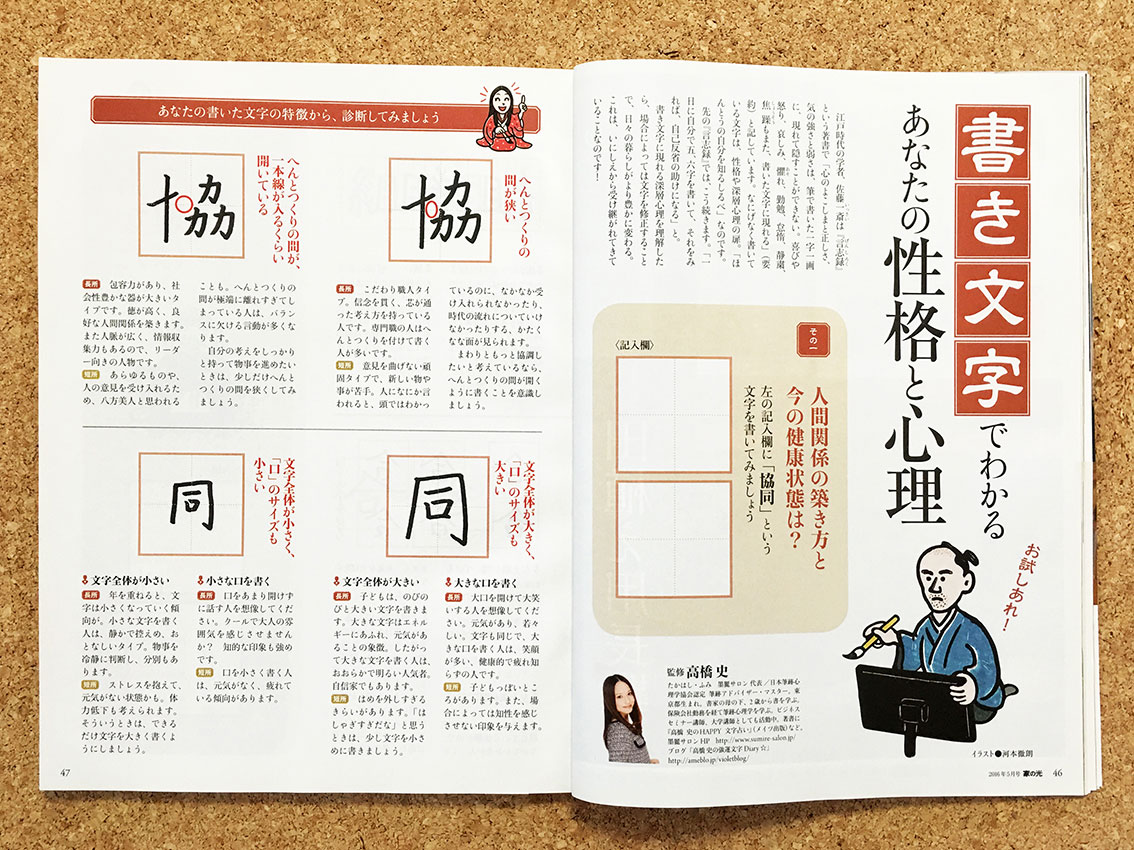 書き文字でわかる
あなたの性格と心理
お試しあれ！
江戸時代の学者、佐藤一斎は『言志録』
という著書で「心のよこしまと正しさ、
気の強さと弱さは、筆で書いた一字一画
に、現れて隠すことができない。喜びや
怒り、哀しみ、懼れ、勤勉、怠惰、静粛、
焦躁もまた、書いた文字に現れる」（要
約）と記しています。なにげなく書いて
いる文字は、性格や深層心理の扉。「ほ
んとうの自分を知るしるべ」なのです。
先の『言志録』では、こう続きます。「一
日に自分で五、六字を書いて、それをみ
れば、自己反省の助けになる」と。
書き文字に現れる深層心理を理解した
ら、場合によっては文字を修正すること
で、日々の暮らしがより豊かに変わる。
これは、いにしえから受け継がれてきて
いることなのです！
その一
人間関係の築き方と
今の健康状態は？
左の記入欄に「協同」という
文字を書いてみましょう
〈記入欄〉
監修 高橋 史
たかはし・ふみ 墨麗サロン 代表／日本筆跡心
理学協会認定 筆跡アドバイザー・マスター。東
京都生まれ。書家の母の下、2歳から書を学ぶ。
保険会社勤務を経て筆跡心理学を学ぶ。ビジネス
セミナー講師、大学講師としても活動中。著書に
『高橋 史のHAPPY 文字占い』（メイツ出版）など。
墨麗サロンHP http://www.sumire-salon.jp/
ブログ「高橋 史の強運文字Diary☆」
http://ameblo.jp/violetblog/
イラスト●河本徹朗
2016年5月号 家の光 46
あなたの書いた文字の特徴から、診断してみましょう
へんとつくりの
間が狭い
協
長所 こだわり職人タイ
プ。信念を貫く、芯が通
った考え方を持っている
人です。専門職の人はへ
んとつくりを付けて書く
人が多いです。
短所 意見を曲げない頑
固タイプで、新しい物や
事が苦手。人になにか言
われると、頭ではわかっ
ているのに、なかなか受
け入れられなかったり、
時代の流れについていけ
なかったりする、かたく
なな面が見られます。
まわりともっと協調し
たいと考えているなら、
へんとつくりの間が開く
ように書くことを意識し
ましょう。
へんとつくりの間が、
一本線が入るくらい
開いている
協
長所 包容力があり、社
会性豊かな器が大きいタ
イプです。徳が高く、良
好な人間関係を築きます。
また人脈が広く、情報収
集力もあるので、リーダ
ー向きの人物です。
短所 あらゆるものや、
人の意見を受け入れるた
め、八方美人と思われる
ことも。へんとつくりの
間が極端に離れすぎてし
まっている人は、バラン
スに欠ける言動が多くな
ります。
自分の考えをしっかり
と持って物事を進めたい
ときは、少しだけへんと
つくりの間を狭くしてみ
ましょう。
文字全体が大きく、
「口」のサイズも
大きい
同
大きな口を書く
長所 大口を開けて大笑
いする人を想像してくだ
さい。元気があり、若々
しい。文字も同じで、大
きな口を書く人は、笑顔
が多い、健康的で疲れ知
らずの人です。
短所 子どもっぽいとこ
ろがあります。また、場
合によっては知性を感じ
させない印象を与えます。
文字全体が大きい
長所 子どもは、のびの
びと大きい文字を書きま
す。大きな文字はエネル
ギーにあふれ、元気があ
ることの象徴。したがっ
て大きな文字を書く人は、
おおらかで明るい人気者。
自信家でもあります。
短所 はめを外しすぎる
きらいがあります。「は
しゃぎすぎだな」と思う
ときは、少し文字を小さ
めに書きましょう。
文字全体が小さく、
「口」のサイズも
小さい
同
小さな口を書く
長所 口をあまり開けず
に話す人を想像してくだ
さい。クールで大人の雰
囲気を感じさせません
か？ 知的な印象も強め
です。
短所 口を小さく書く人
は、元気がなく、疲れて
いる傾向があります。
文字全体が小さい
長所 年を重ねると、文
字は小さくなっていく傾
向が。小さな文字を書く
人は、静かで控えめ、お
となしいタイプ。物事を
冷静に判断し、分別もあ
ります。
短所 ストレスを抱えて、
元気がない状態かも。体
力低下も考えられます。
そういうときは、できる
だけ文字を大きく書くよ
うにしましょう。
47